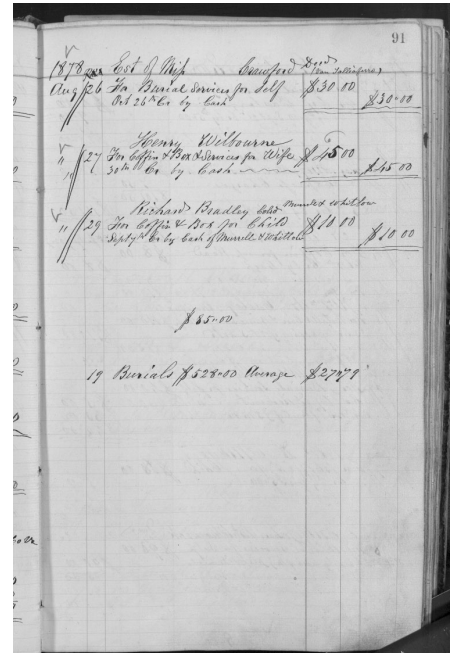 91
1878 Est of Miss Crawford Decd
Aug 26 For Burial Services for Self $30 00
Oct 26th Cr by Cash $30"00
Henry Wilbourne
" 27 For Coffin & Box & Services for Wife $45 00
" 30th Cr by Cash $45 00
Richard Bradley Cold Whitlow
" 29 For Coffin & Box for Child $10 00
Sept 7th Cr by Cash of Murrell & Whitlow $10 00
$85"00
19 Burials $528"00 Average $27"79